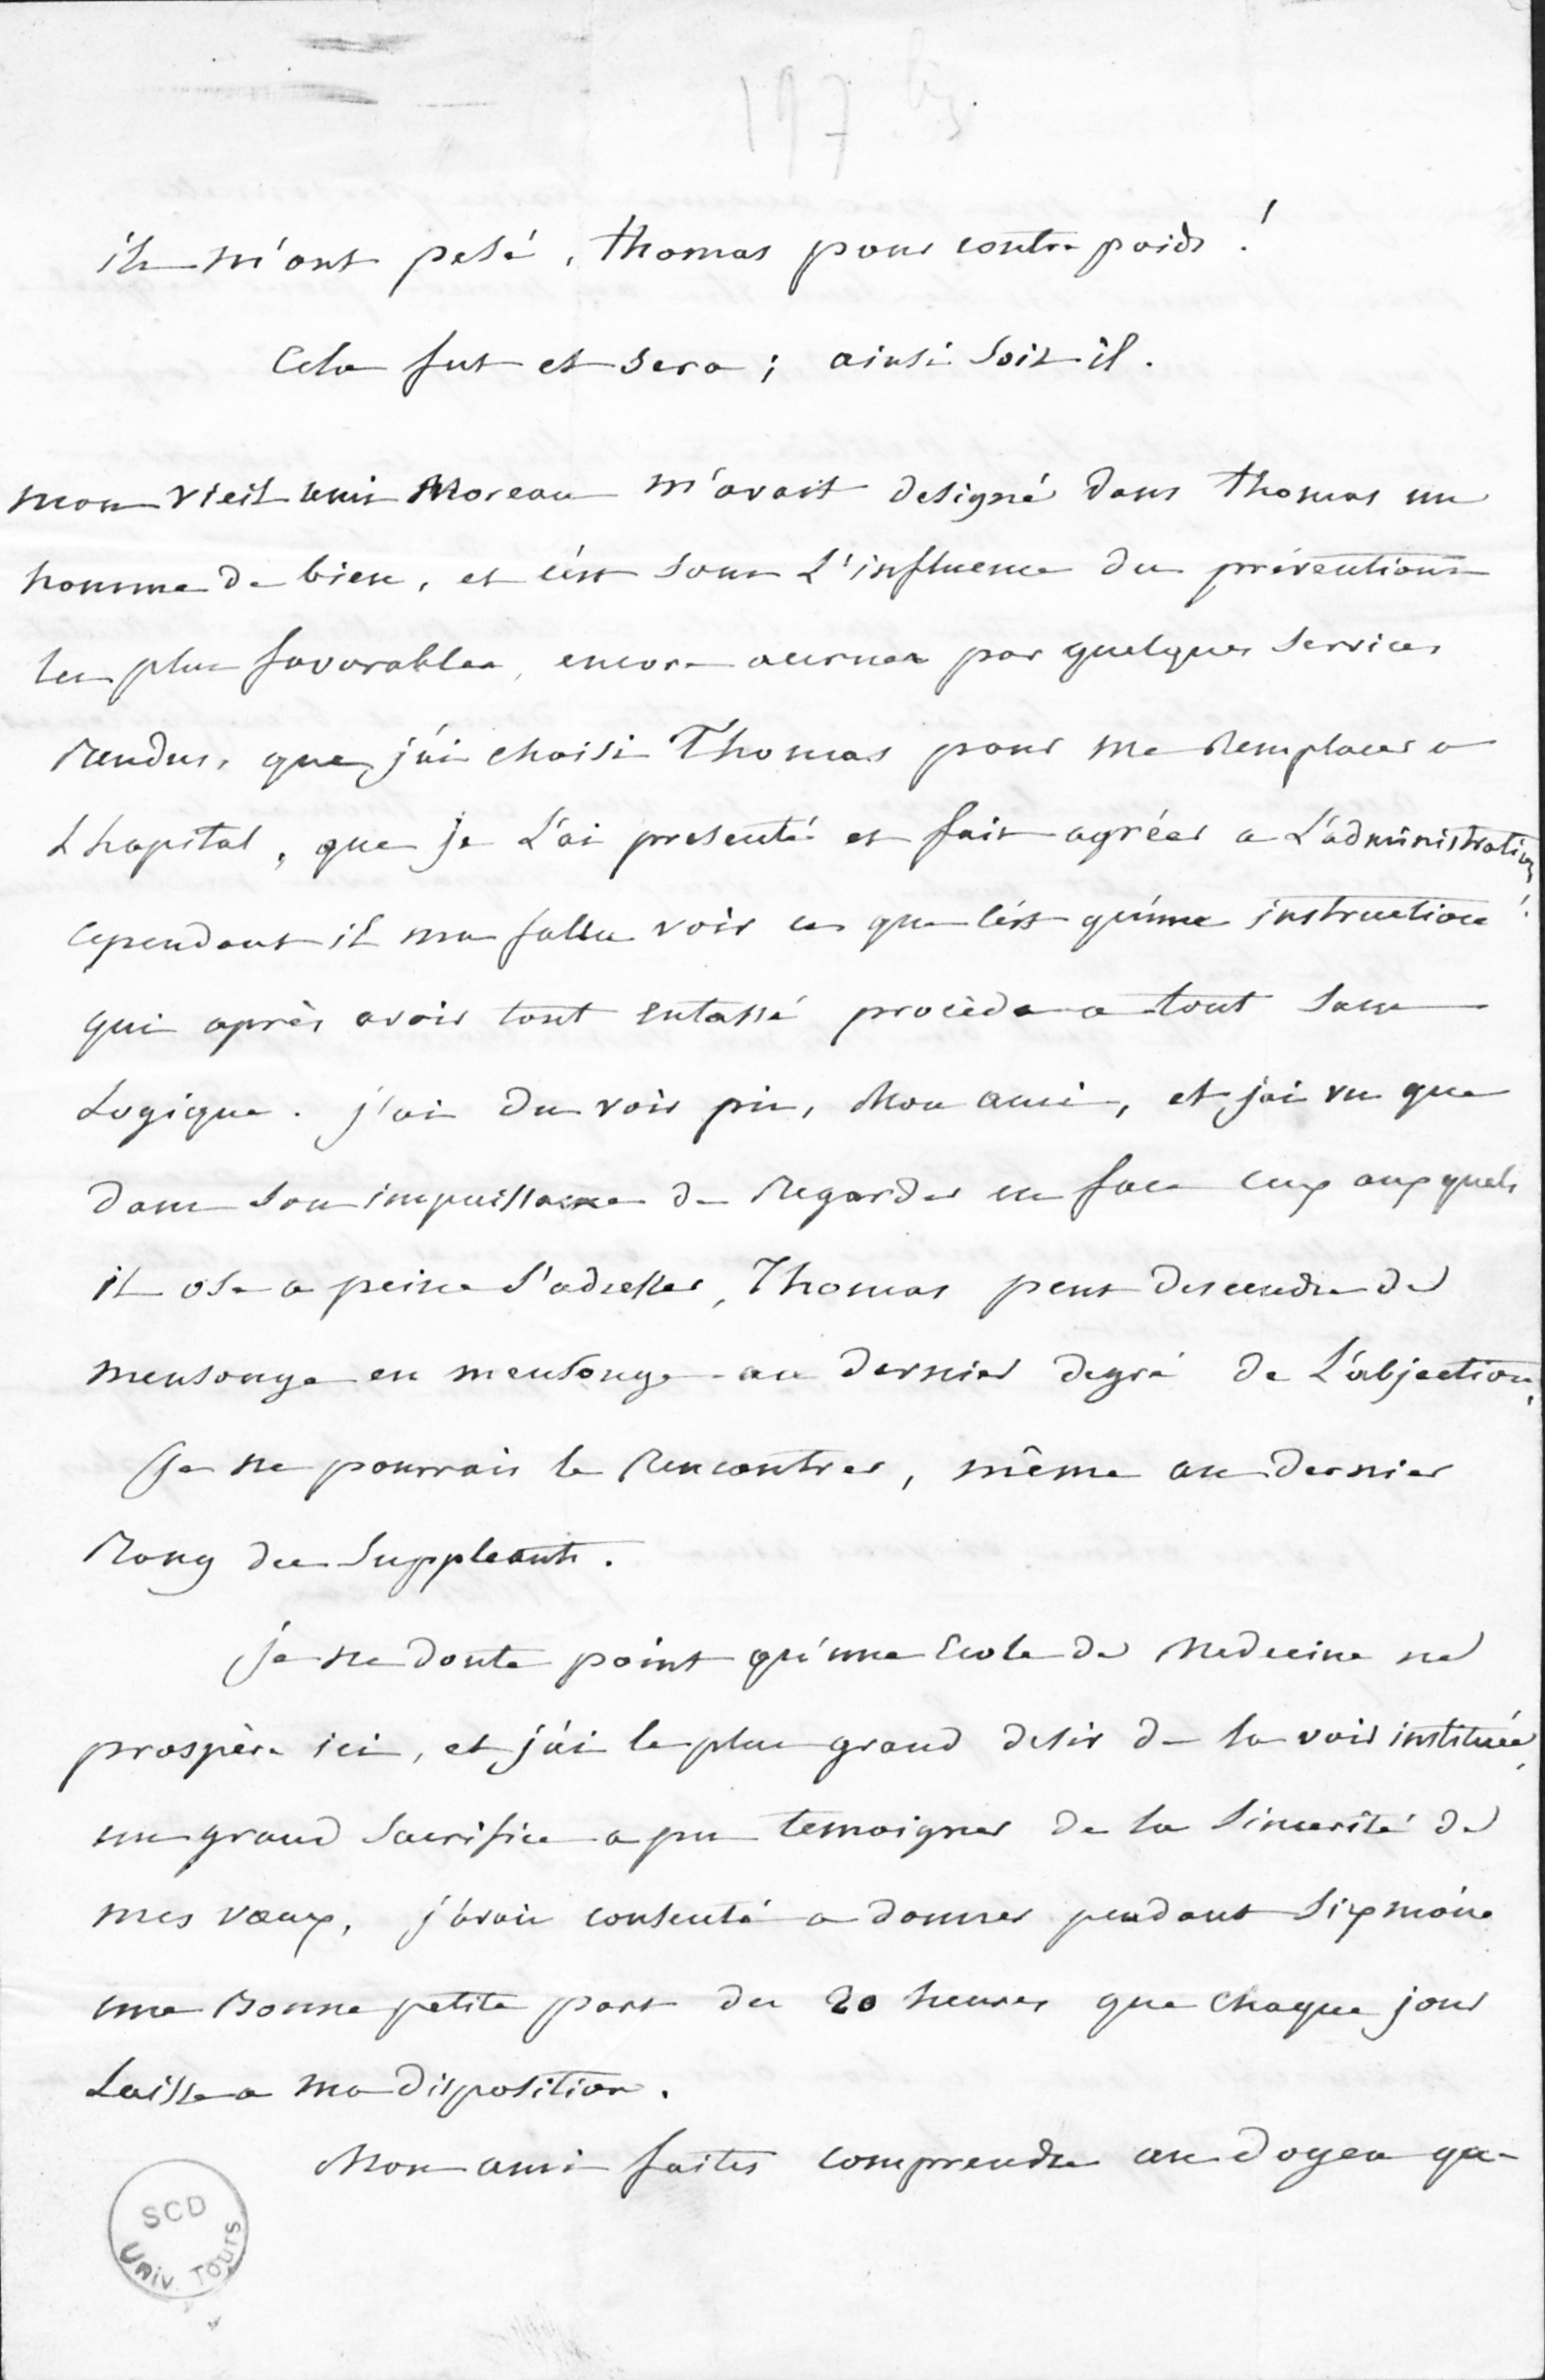 197 bis
ils m'ont pesé, thomas pour contre poids !
Cela fut et sera ; ainsi soit-il.
mon vieil ami Moreau m'avait designé dans thomas un
homme de bien, et c'est sous L'influence des préventions
les plus favorables, encore accrues par quelques services
Rendus, que j'ai choisi Thomas pour me Remplacer a
L hopital, que je L'ai presenté et fait agréer a L'administration,
cependant il ma fallu voir ce que c'est qu'une instruction !
qui après avoir tout entassé procède a tout sans
Logique. j'ai du voir pis, Mon ami, et j'ai vu que
dans son impuissance de Regarder en face ceux auxquels
il ose a peine s'adresser, Thomas peut descendre de
mensonge en mensonge au dernier degré de L'abjection,
je ne pourrais le Rencontrer, même au dernier
Rang des suppleants.
je ne doute point qu'une Ecole de Medecine ne
prospère ici, et j'ai le plus grand desir de la voir instituée,
un grand sacrifice a pu temoigner de la sincerité de
mes vœux, j'avais consenti a donner pendant six mois
une Bonne petite part des 20 heures que chaque jour
Laisse a ma disposition.
Mon ami faites comprendre au doyen que
SCD
Univ. TOURS